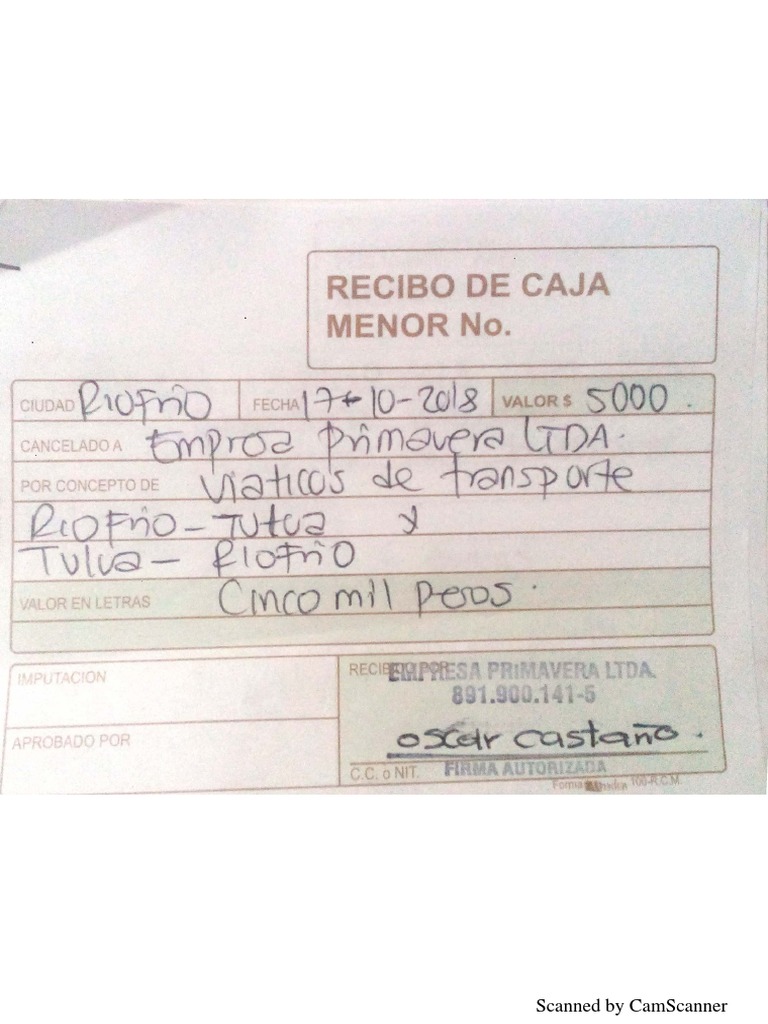 RECIBO DE CAJA
MENOR No.
CIUDAD Riofrio FECHA 17-10-2018 VALOR $ 5000.
CANCELADO A Emproa primavera LTDA.
POR CONCEPTO DE Viaticos de transporte
Riofrio - Tutua y
Tulua - Riofrio
VALOR EN LETRAS Cinco mil pesos.
IMPUTACION
RECIBIDO POR
EMPRESA PRIMAVERA LTDA.
891.900.141-5
APROBADO POR
oscar castaño.
C.C. o NIT. FIRMA AUTORIZADA
100-R.C.M.
Scanned by CamScanner